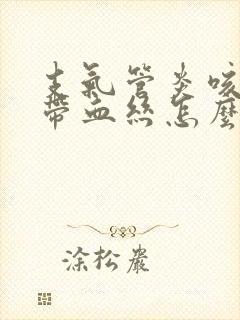 支氣管炎咳
帶血絲怎麼
涂松巖